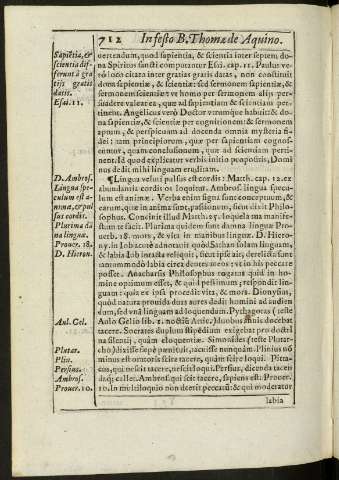 712
In festo B. Thomæ de Aquino.
Sapiẽtia, &
scientia dif-
ferunt à gra
tijs gratis
datis.
Esai. 11.
D. Ambros.
Lingua spe-
culum est a-
nimæ, & pul
sus cordis.
Plurima dã
na linguæ.
Prouer. 18.
D. Hieron.
Aul. Gel.
Plutar.
Plin.
Persius.
Ambros.
Prouer. 10.
uertendum, quod sapientia, & scientia inter septem do-
na Spiritus sancti computantur Esai. cap. 11. Paulus ve-
rò loco citato inter gratias gratis datas, non constituit
dona sapientiæ, & scientiæ: sed sermonem sapientiæ, &
sermonem scientiæ: vt homo per sermonem alijs per-
suadere valeat ea, quæ ad sapientiam & scientiam per-
tinent. Angelicus verò Doctor vtrumque habuit: & do-
na sapientiæ, & scientiæ per cognitionem: & sermonem
aptum, & perspicuum ad docenda omnia mysteria fi-
dei: tam principiorum, quæ per sapientiam cognosc-
untur, quam conclusionum, quæ ad scientiam perti-
nent. Id quod explicatur verbis initio propositis, Domi
nus dedit mihi linguam eruditam.
¶ Lingua veluti pulsus est cordis: Matth. cap. 12. ex
abundantia cordis os loquitur. Ambros. lingua specu-
lum est animæ. Verba enim signa sunt conceptuum, &
earum, quæ in anima sunt, passionum, sicu dixit Philo-
sophus. Concinit illud Matth. 25. loquela tua manife-
stum te facit. Plurima quidem sunt damna linguæ Pro-
uerb. 18. mors, & vita in manibus linguæ. D. Hiero-
ny. in Iob acutè adnotauit quòd Sathan solam linguam,
& labia Iob intacta reliquit, sicut ipse ait; derelicta sunt
tantummodo labia circa dentes meos: vt in his peccare
posset. Anacharsis Philosophus rogatus quid in ho-
mine optimum esset, & quid pessimum, respondit lin-
guam: quia ex ipsa procedit vita, & mors. Dionysius,
quòd natura prouida duas aures dedit homini ad audien
dum, sed vnã linguam ad loquendum. Pythagoras (teste
Aulo Gelio lib. 1. noctiũ Attic.) duobus annis docebat
tacere. Socrates duplum stipẽdium exigebat pro doctri
na silentij, quàm eloquentiæ. Simonides (teste Plutar-
cho) dixisse sepè pœnituit, tacuisse nunquam. Plinius nõ
minus est oratoris scire tacere, quàm scire loqui. Pitta-
cus, qui nescit tacere, nescit loqui. Persius, dicenda taceñ
daq; calles. Ambros. qui scit tacere, sapiens est. Prouer.
10. in multiloquio non deerit peccatum: & qui moderatur
labia